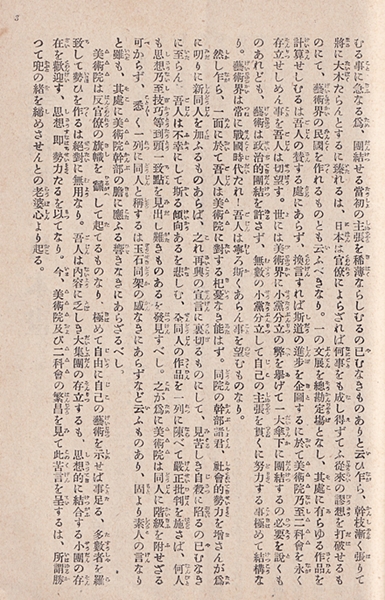 3
むる事に急なる爲、團結せる當初の主張を稀薄ならしむるの已むなきものありと云ひ乍ら、幹枝漸く張りて
將に大木たらんとするに到れるは、日本は官僚によらざれば何事をも成し得ずてふ從來の謬想を打破せるも
のにて、藝術界の民國を作れるものともいふべきなり。一の文展を總勘定塲となし、其處に有らゆる作品を
計算せしむるは吾人の賛する處にあらず、換言すれば斯道の進步を企圖するに於て美術院乃至二科會を永く
存立せしめん事を吾人は切望す。世には美術界に小黨分立の弊を擧げて一大傘下に團結するの必要を說くも
のあれども、藝術は政治的團結を許さず、無數の小黨分立して自己の主張を貫くに努力する事極めて結構な
り。藝術界は常に戰國時代たれ！吾人は永久斯くあらん事を望むものなり。
然し乍ら、一面に於て吾人は美術院に對する杞憂なき能はず。同院の幹部諸君、社會的勢力を增さんが爲
に明りに新同人を加ふるものあらば、之れ再興の宣言に裏切るものにして、見苦しき自殺に陷るの已むなき
に至らん。吾人は不幸にして斯る傾向あるを悲しむ、全同人の作品を一列に陳べて嚴正批判を施さば、何人
も思想乃至技巧等到頭一致點を見出し難きものあるを發見すべし。之が爲に美術院は同人に階級を附せざる
可からず、悉く一列に同人と稱するは玉石同架の感なきにあらずなど云ふものあり、固より素人の言なり
と雖も、其處に美術院幹部の膽に應ふる痛きなきにあらざるべし。
美術院は反官僚の旗幟を飜して起てるものなり、極めて自由に自己の藝術を示せば事足る、多數者を羅
致して勢ひを作るは絕對に無用なり。吾人は內容に乏しき大集團の存立するよりも、思想的に結合する小團の存
在を歡迎す、思想、卽、勢力たるを以てなり。今、美術院及び二科會の繁昌を見て此苦言を呈するは、所謂勝
つて兜の緖を締めさせんとの老婆心より起る。